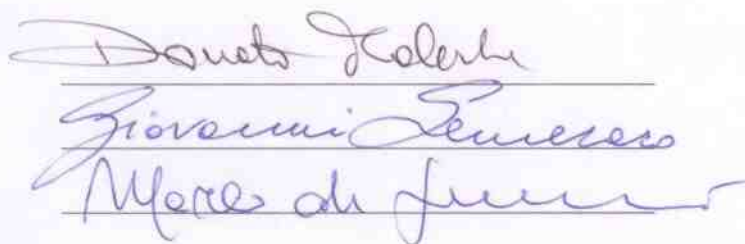 Donato Malerba
Giovanni Semeraro
Marco de